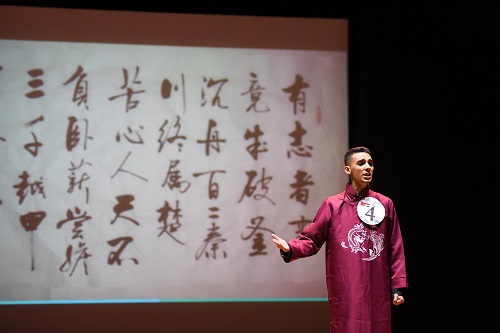 有志者事
竟成破釜
沉舟百二秦
川終属楚
苦心人天不
負卧薪嘗膽
三千越甲
4